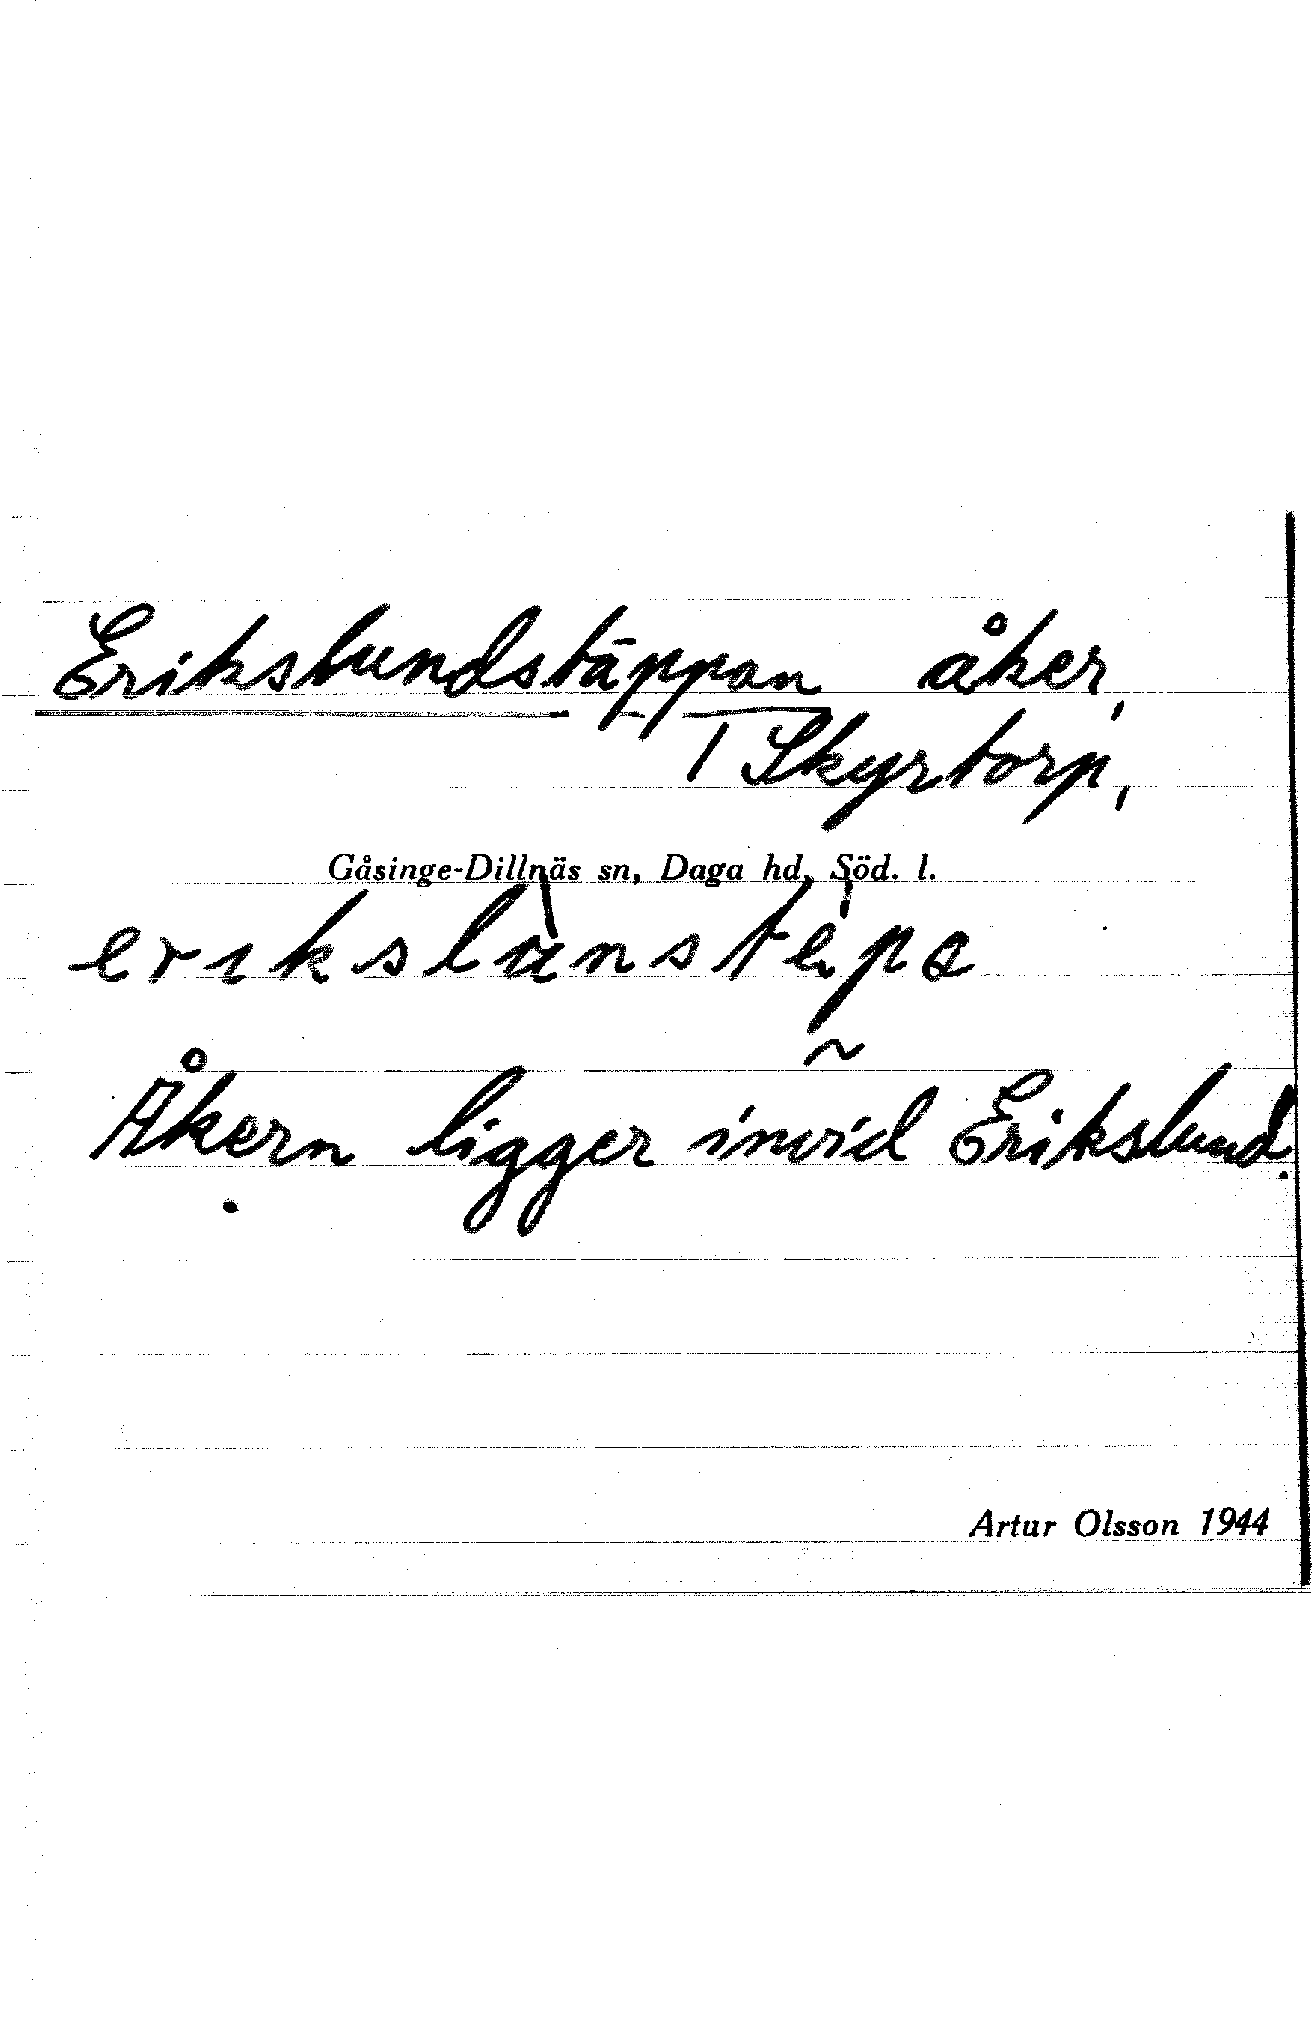 Erikslundstäppan åker,
Skyrtorp,
Gåsinge-Dillnäs sn, Daga hd, Söd. l.
Åkern ligger invid Erikslund.
Artur Olsson 1944